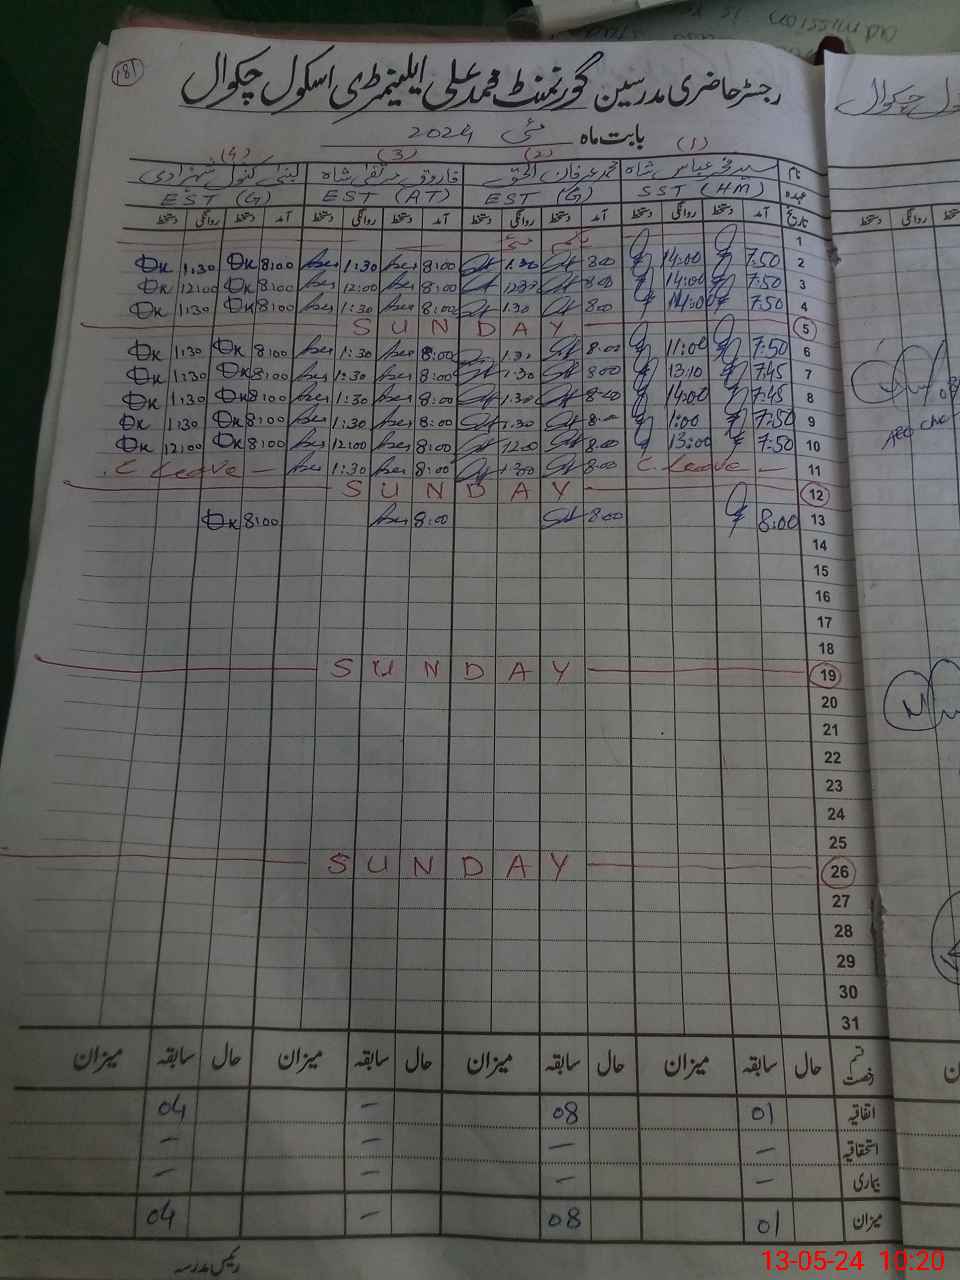 181
رجسٹر حاضری مدرسین گورنمنٹ محمد علی ایلیمنٹری اسکول چکوال
بابت ماہ مئی 2024
(1) (2) (3) (4)
نام سید فخر عباس شاہ محمد عرفان الحق فاروق مرتضی شاہ لبنیٰ کنول شہزادی
عہدہ SST (HM) EST (G) EST (AT) EST (G)
تاریخ آمد دستخط روانگی دستخط آمد دستخط روانگی دستخط آمد دستخط روانگی دستخط آمد دستخط روانگی دستخط
1 یکم مئی
2 7:50 14:00 8:00 1:30 8:00 1:30 8:00 1:30
3 7:50 14:00 8:00 12:00 8:00 12:00 8:00 12:00
4 7:50 14:00 8:00 1:30 8:00 1:30 8:00 1:30
5 SUNDAY
6 7:50 11:00 8:00 1:30 8:00 1:30 8:00 1:30
7 7:45 13:10 8:00 1:30 8:00 1:30 8:00 1:30
8 7:45 14:00 8:00 1:30 8:00 1:30 8:00 1:30
9 7:50 1:00 8:00 1:30 8:00 1:30 8:00 1:30
10 7:50 13:00 8:00 12:00 8:00 12:00 8:00 12:00
11 C. Leave 8:00 1:30 8:00 1:30 C. Leave
12 SUNDAY
13 8:00 8:00 8:00 8:00
14
15
16
17
18
19 SUNDAY
20
21
22
23
24
25
26 SUNDAY
27
28
29
30
31
قسم رخصت حال سابقہ میزان حال سابقہ میزان حال سابقہ میزان حال سابقہ میزان
اتفاقیہ 01 08 - 04
استحقاقیہ - - - -
بیماری - - - -
میزان 01 08 - 04
رئیس مدرسہ
13-05-24 10:20